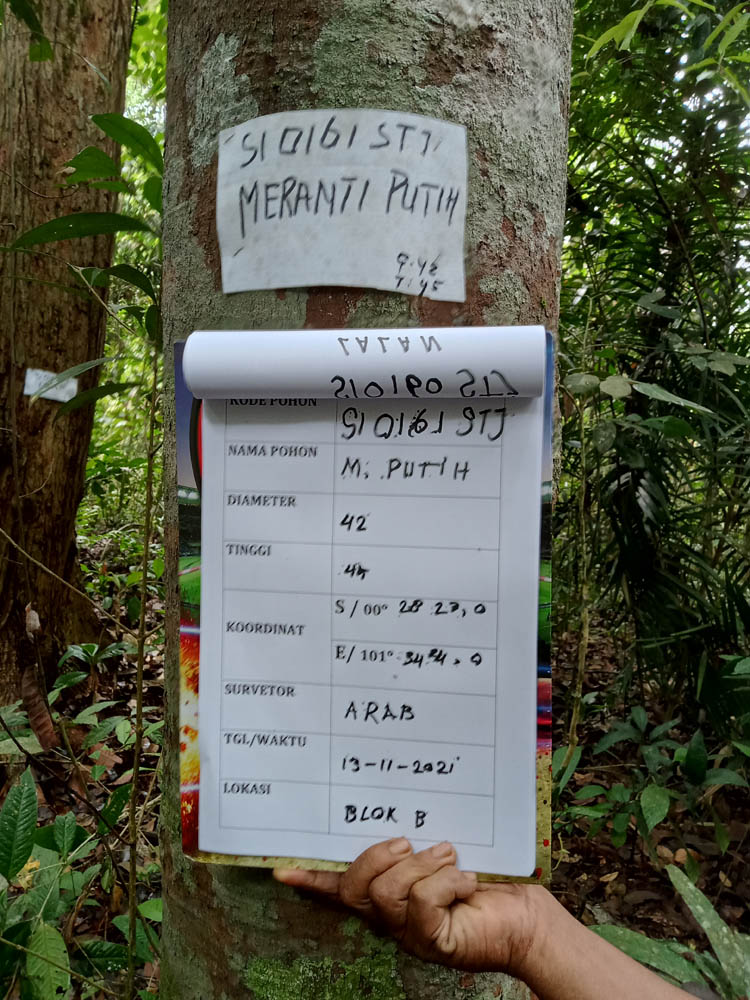 SI 0161 STJ
MERANTI PUTIH
T. 45
LALAN
SI 0160 STJ
KODE POHON SI 0161 STJ
NAMA POHON M. PUTIH
DIAMETER 42
TINGGI 45
KOORDINAT S / 00° 28 23,0
E/ 101° 34 34.0
SURVEYOR ARAB
TGL/WAKTU 13-11-2021
LOKASI BLOK B